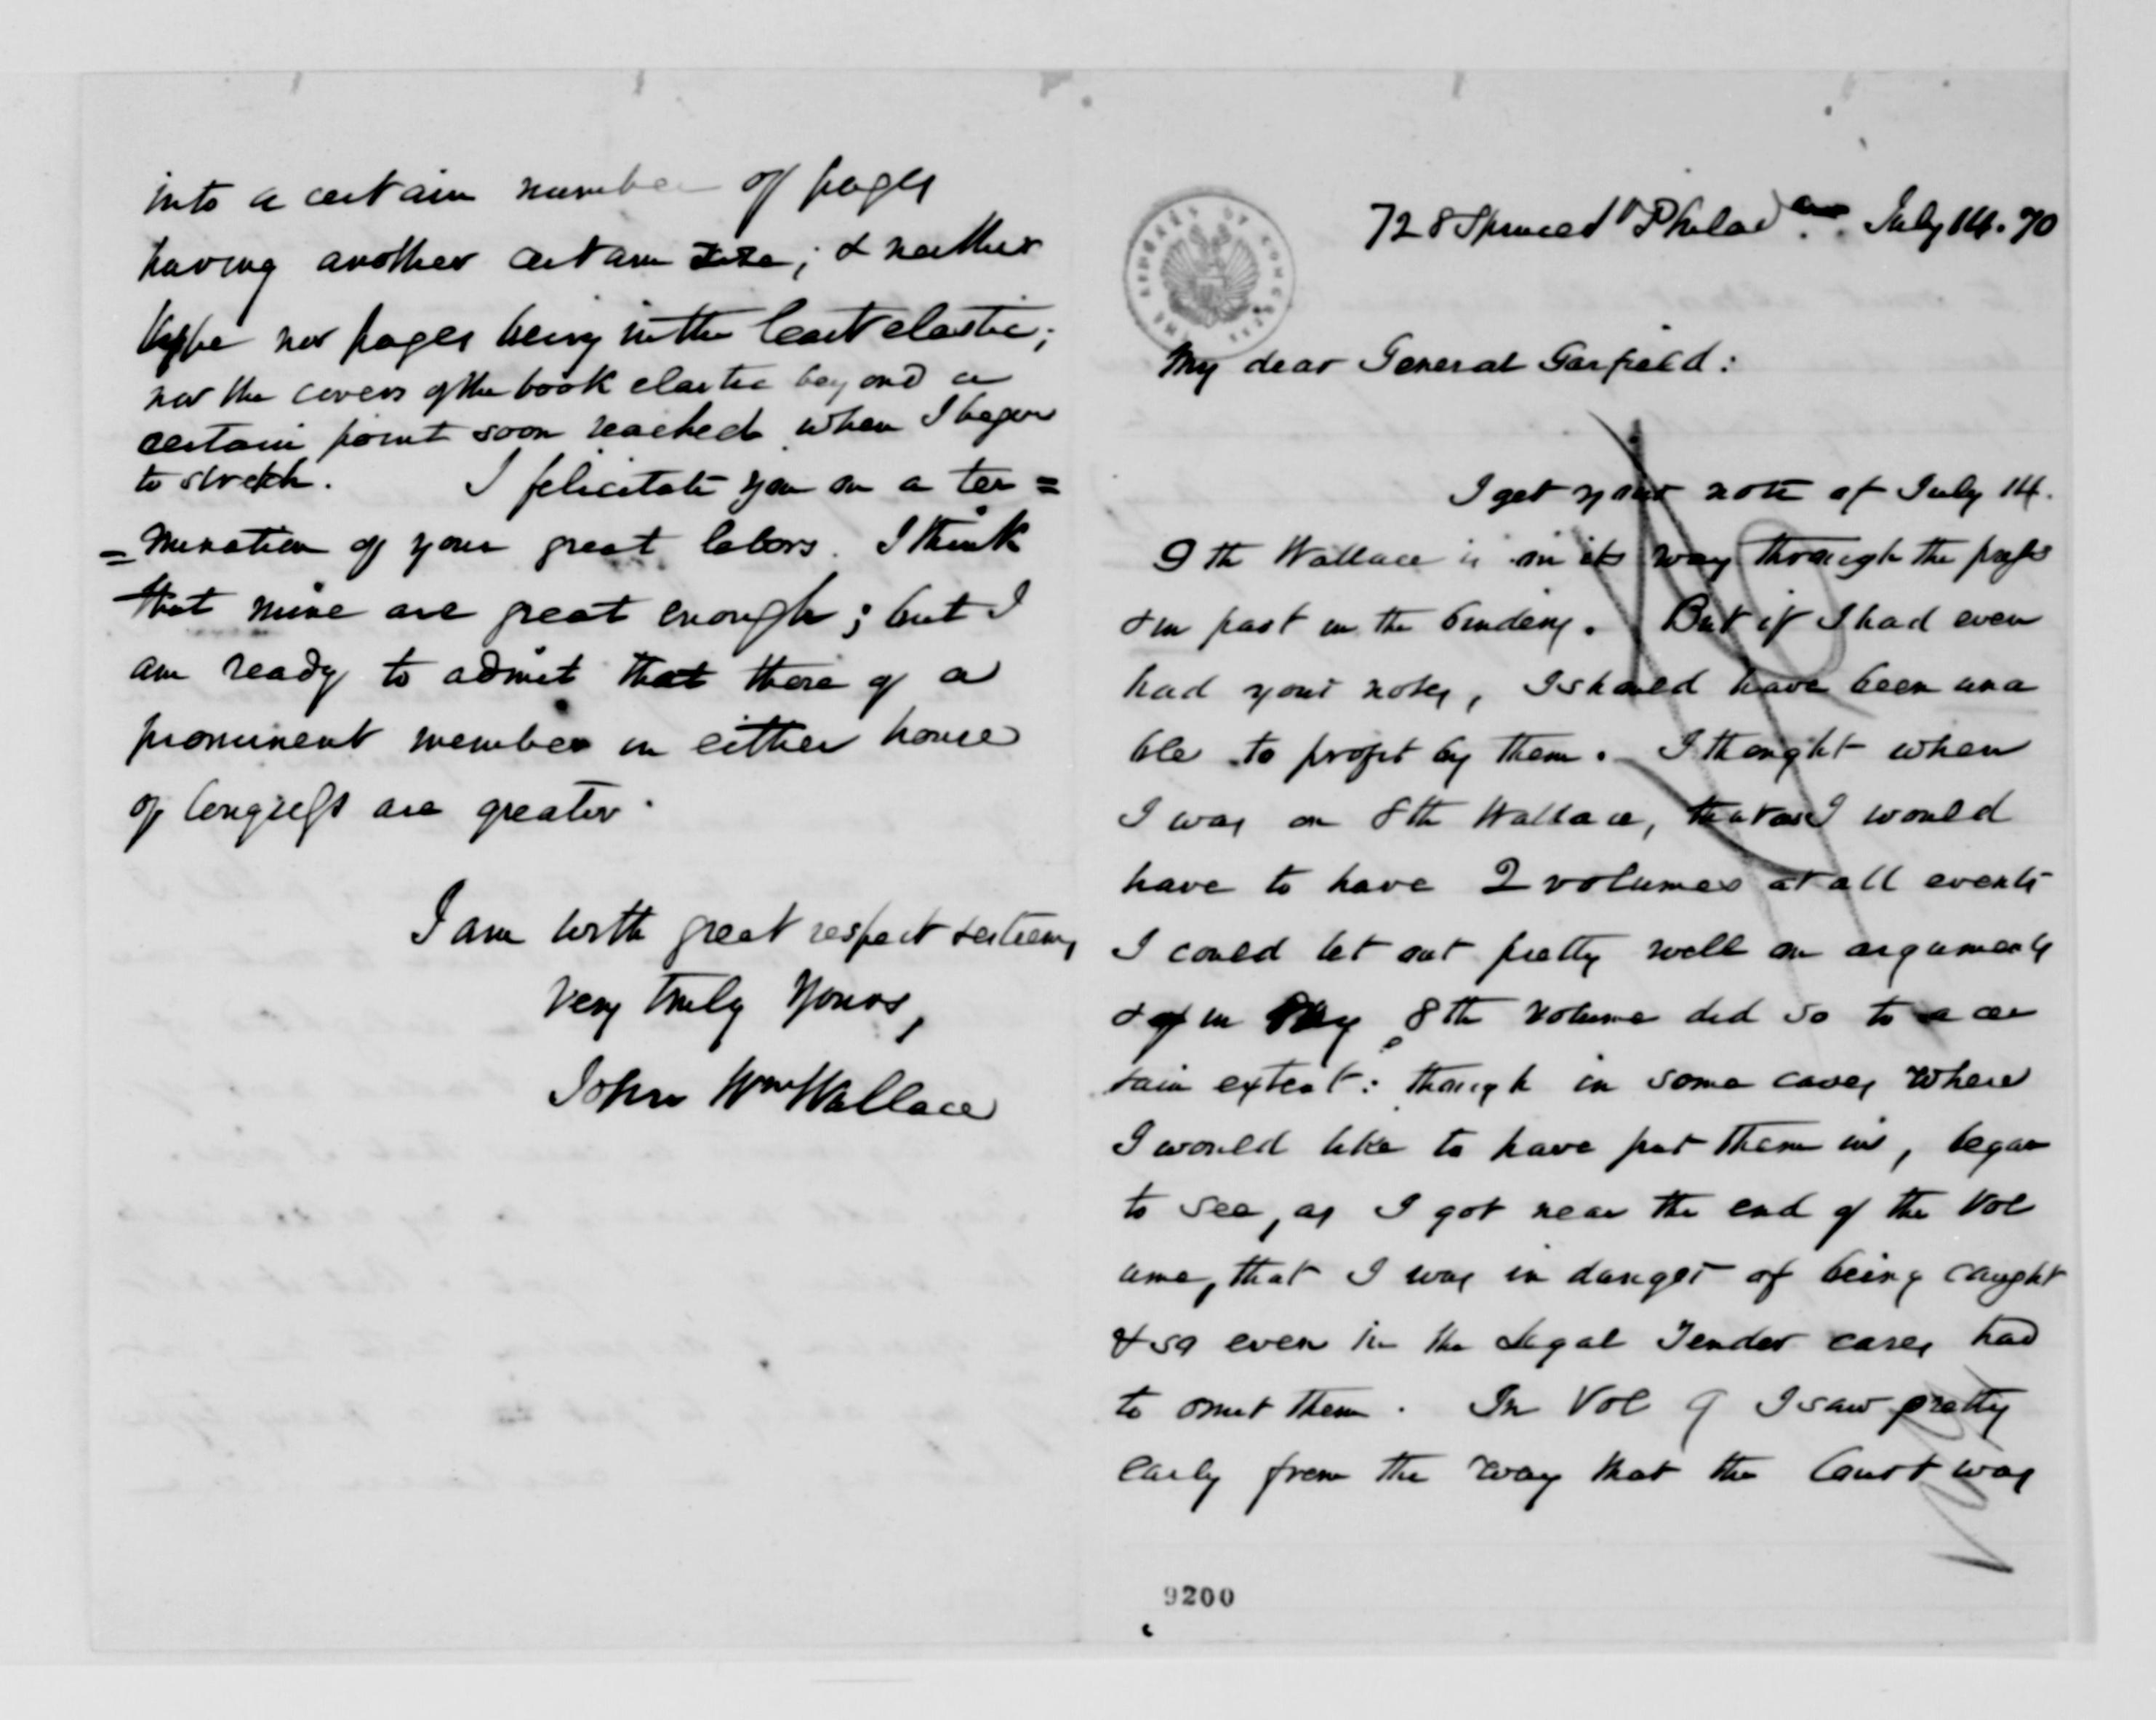 728 Spruce St Philada. July 14. 70
THE LIBRARY OF CONGRESS
My dear General Garfield:
I get your note of July 14.
9th Wallace is on its way through the press
& in part in the binding. But if I had even
had your notes, I should have been una
ble to profit by them. I thought when
I was on 8th Wallace, that as I would
have to have 2 volumes at all events
I could let out pretty well on arguments
& in my 8th volume did so to a cer
tain extent: though in some cases where
I would like to have put them in, began
to see, as I got near the end of the Vol
ume, that I was in danger of being caught
& so even in the Legal Tender cases had
to omit them. In Vol 9 I saw pretty
early from the way that the Court was
9200
into a certain number of pages
having another certain size; & neither
type nor pages being in the least elastic;
nor the covers of the book elastic beyond a
certain point soon reached when I began
to stretch. I felicitate you on a ter=
=mination of your great labors. I think
that mine are great enough; but I
am ready to admit that those of a
prominent member in either house
of Congress are greater.
I am with great respect & esteem,
Very truly Yours,
John Wm Wallace